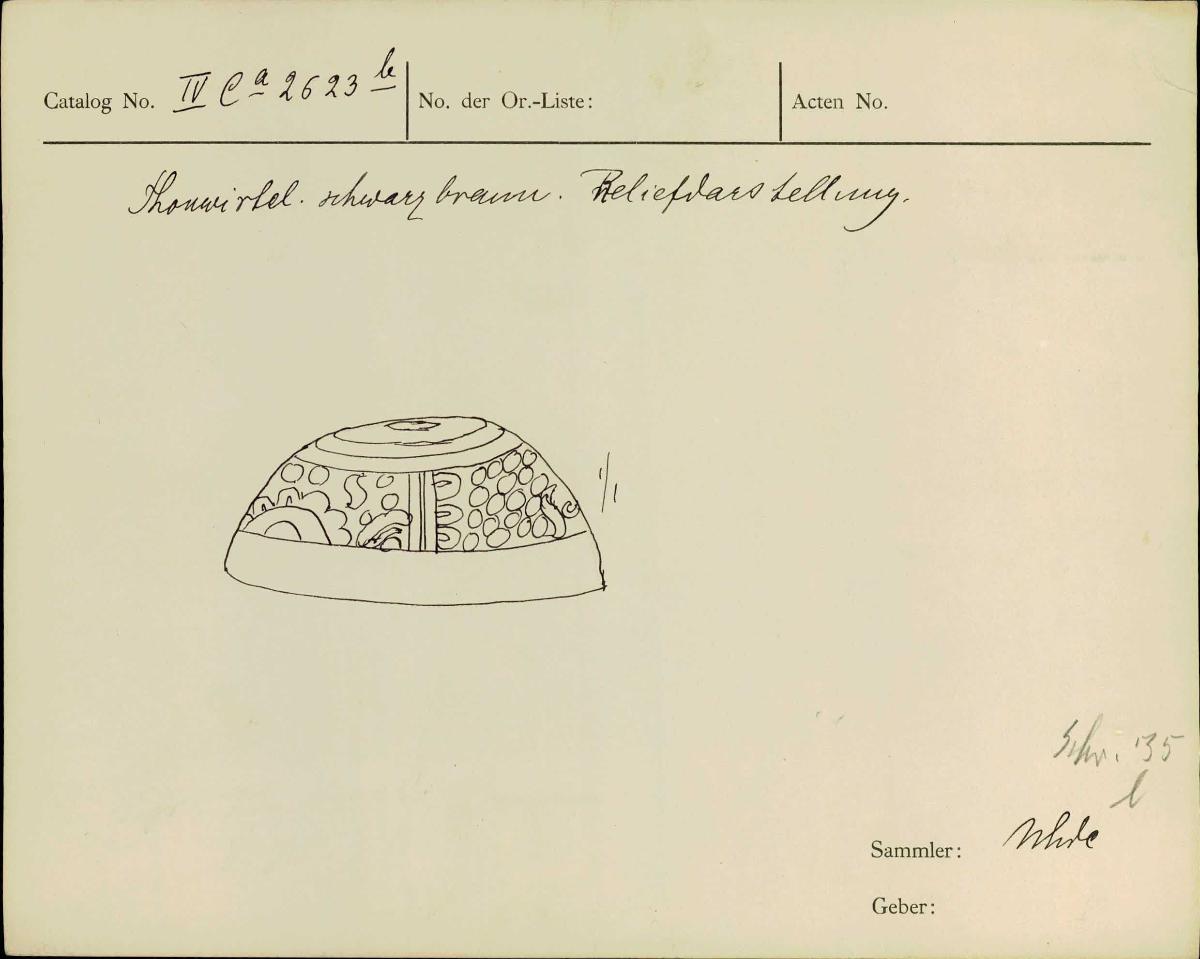 Catalog No. IV Ca 2623 b No. der Or.-Liste: Acten No.
Thonwirtel. schwarzbraun. Reliefdarstellung.
1/1
Schr. 135
l
Sammler: Uhde
Geber: